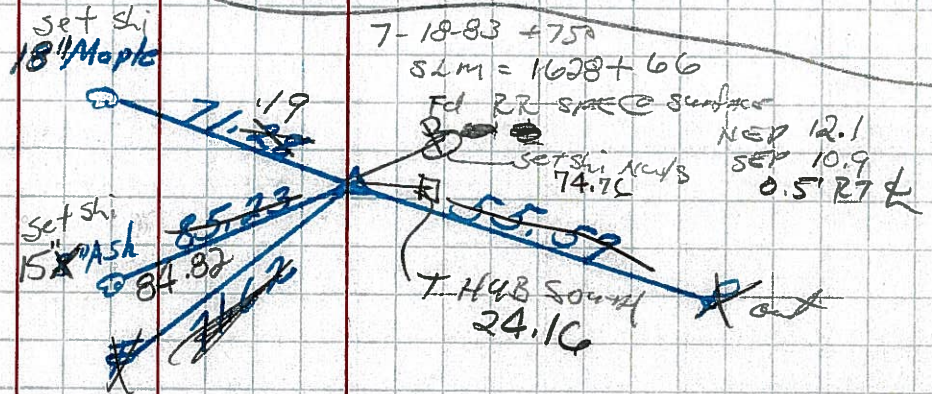 set shi
18" Maple
7-18-83 +75°
SLM = 1628+66
71.19
Fd RR SPK @ Surface
NEP 12.1
SEP 10.9
0.5' RT ℄
set shi
74.76
set shi
15" Ash
85.23
84.82
55.59
T. HUB South
24.16
out